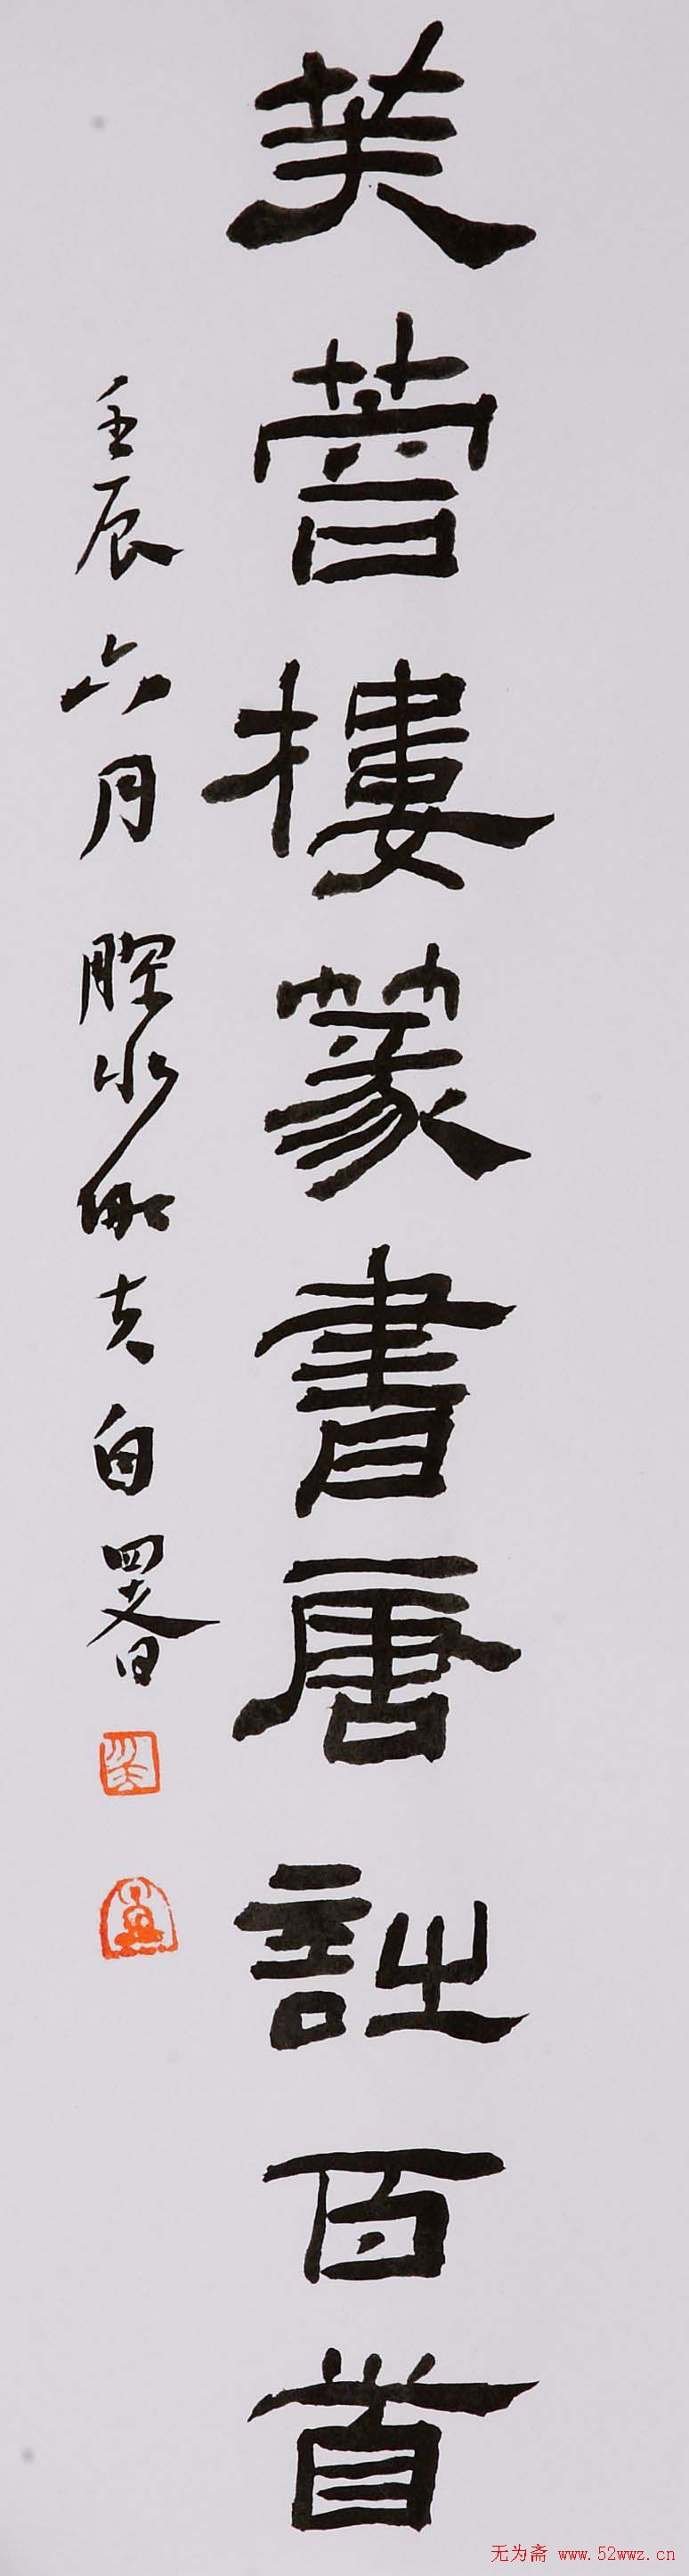 芙蓉樓篆書唐詩百首
壬辰六月 水 夫自署
无为斋 www.52wwz.cn